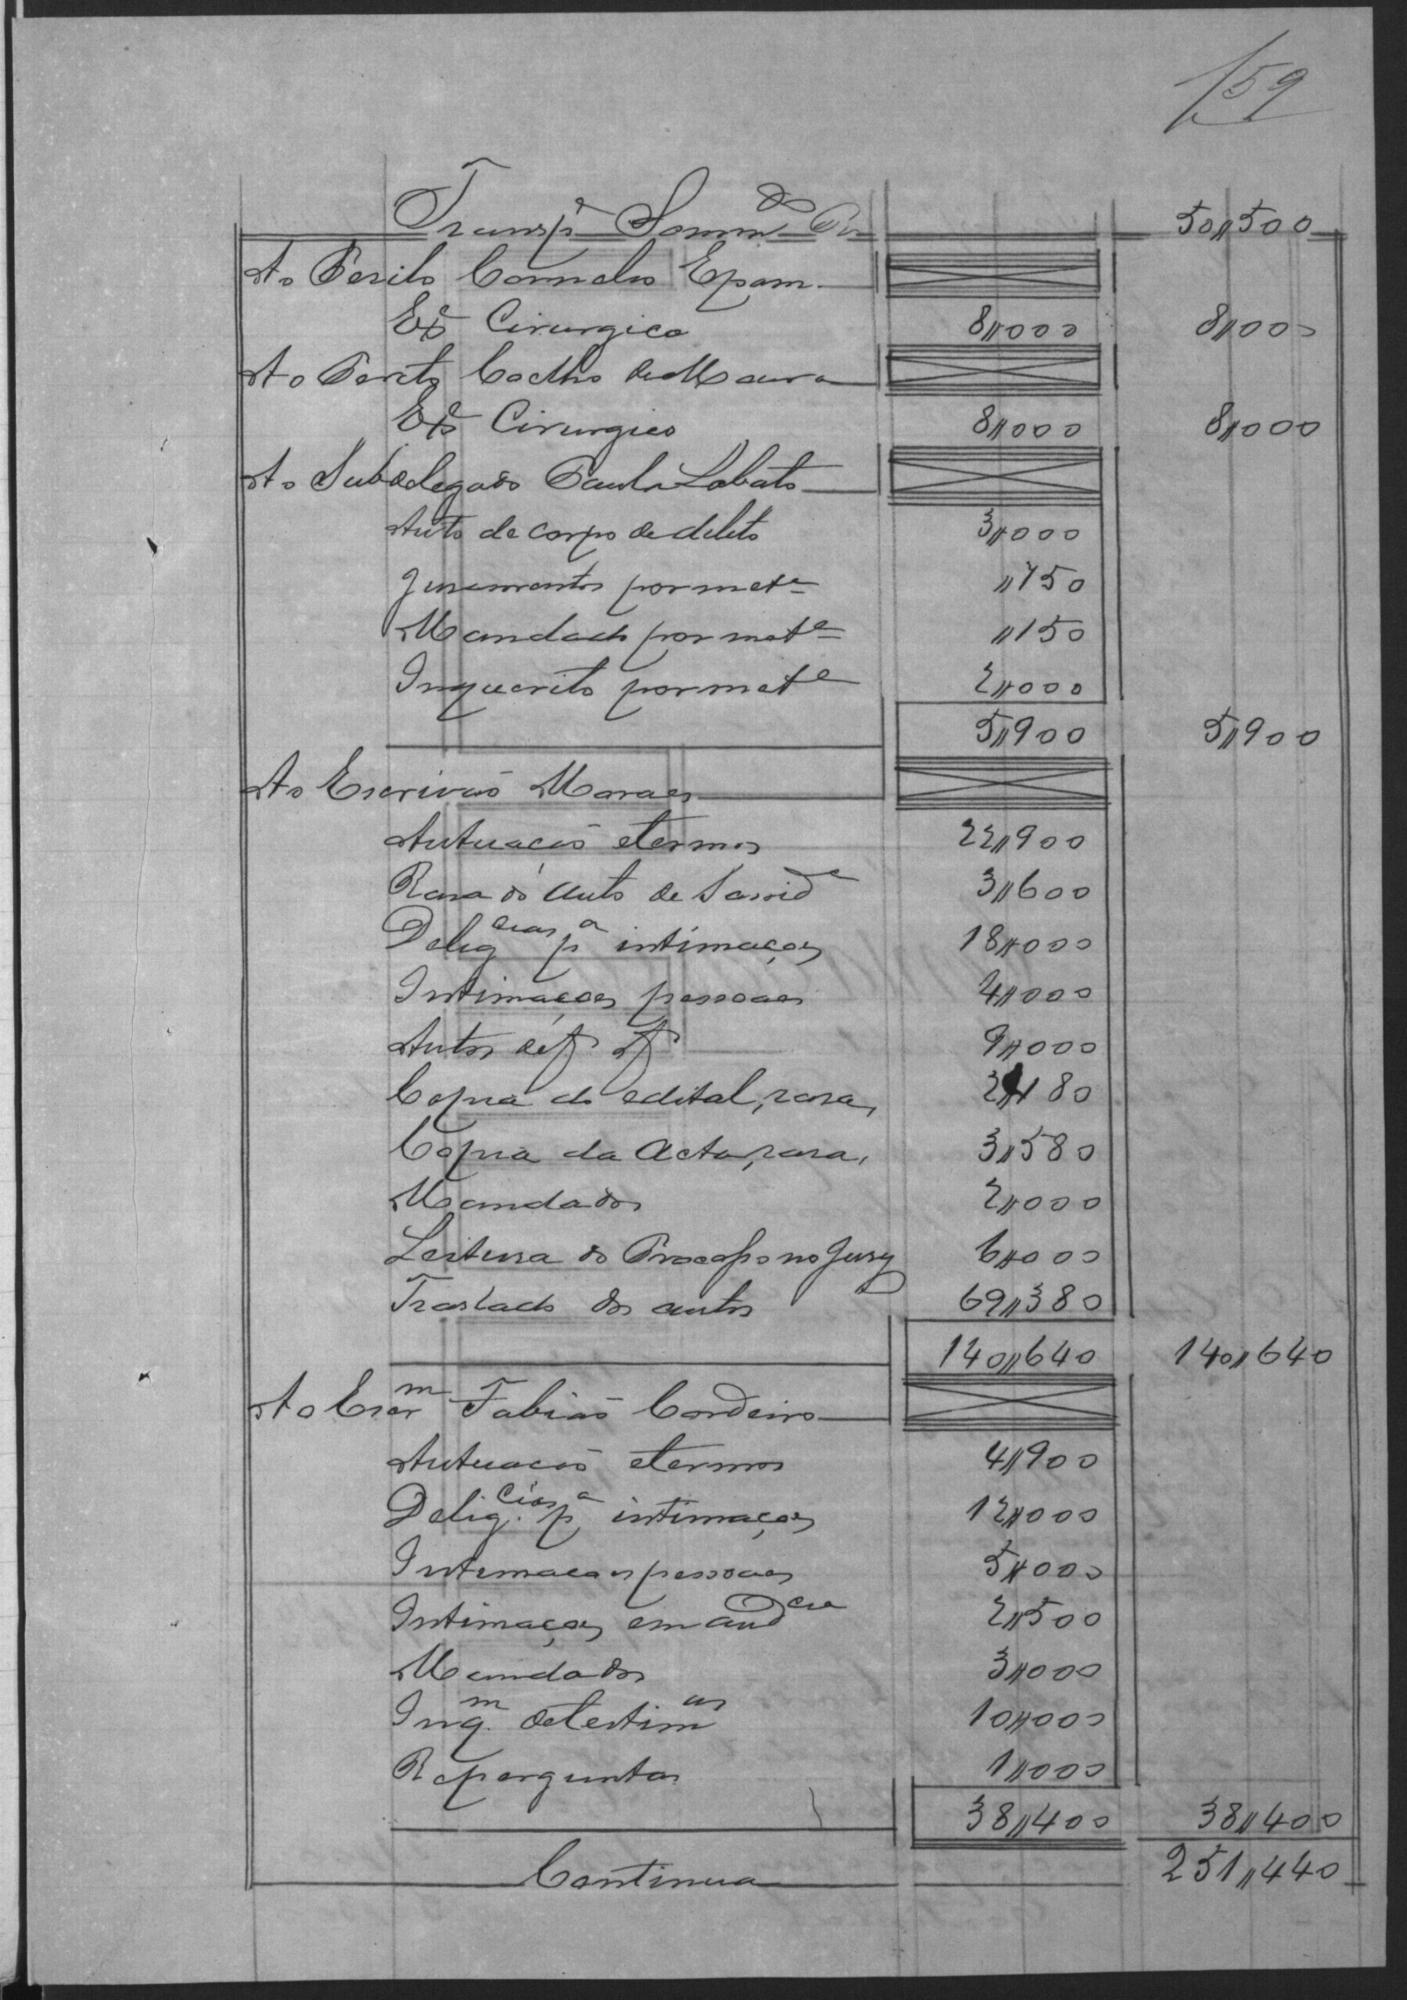 159
Transp.e Somm.do 50,,500
Ao Perito Cornelio Epam.
Ex.e Cirurgico 8,,000 8,,000
Ao Perito Coelho de Moura
Ex.e Cirurgico 8,,000 8,,000
Ao Subdelegado Paula Lobato
Auto de corpo de delito 3,,000
Juramentos por met.e ,,750
Mandado por met.e ,,150
Inquerito por met.e 2,,000
5,,900 5,,900
Ao Escrivão Moraes
Autuacão e termos 22,,900
Rasa do auto de Sanid.e 3,,600
Delig.cias p.a intimações 18,,000
Intimações pessoaes 4,,000
Autos de 9,,000
Copia do edital, rasa, 2,,180
Copia da Acta, rasa, 3,,580
Mandados 2,,000
Leitura do Processo no Jury 6,,000
Traslado dos autos 69,,380
140,,640 140,,640
Ao Escr.m Fabião Cordeiro
Autuacão e termos 4,,900
Delig.cias p.a intimações 12,,000
Intimacões pessoaes 5,,000
Intimações em aud.cia 2,,500
Mandados 3,,000
Inq.m de testim.as 10,,000
Reperguntas 1,,000
38,,400 38,,400
Continua 251,,440